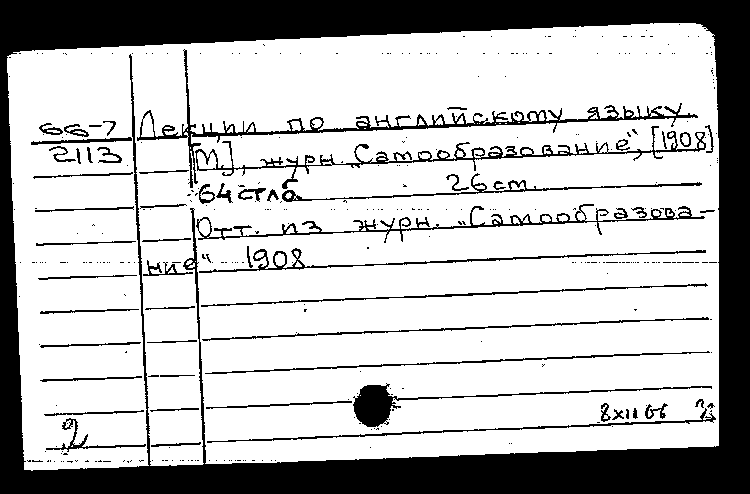 66-7 Лекции по английскому языку.
2113 [М.], журн. „Самообразование“, [1908]
64 стлб. 26 cm.
Отт. из журн. „Самообразова-
ние“ 1908
8 XII 66
2